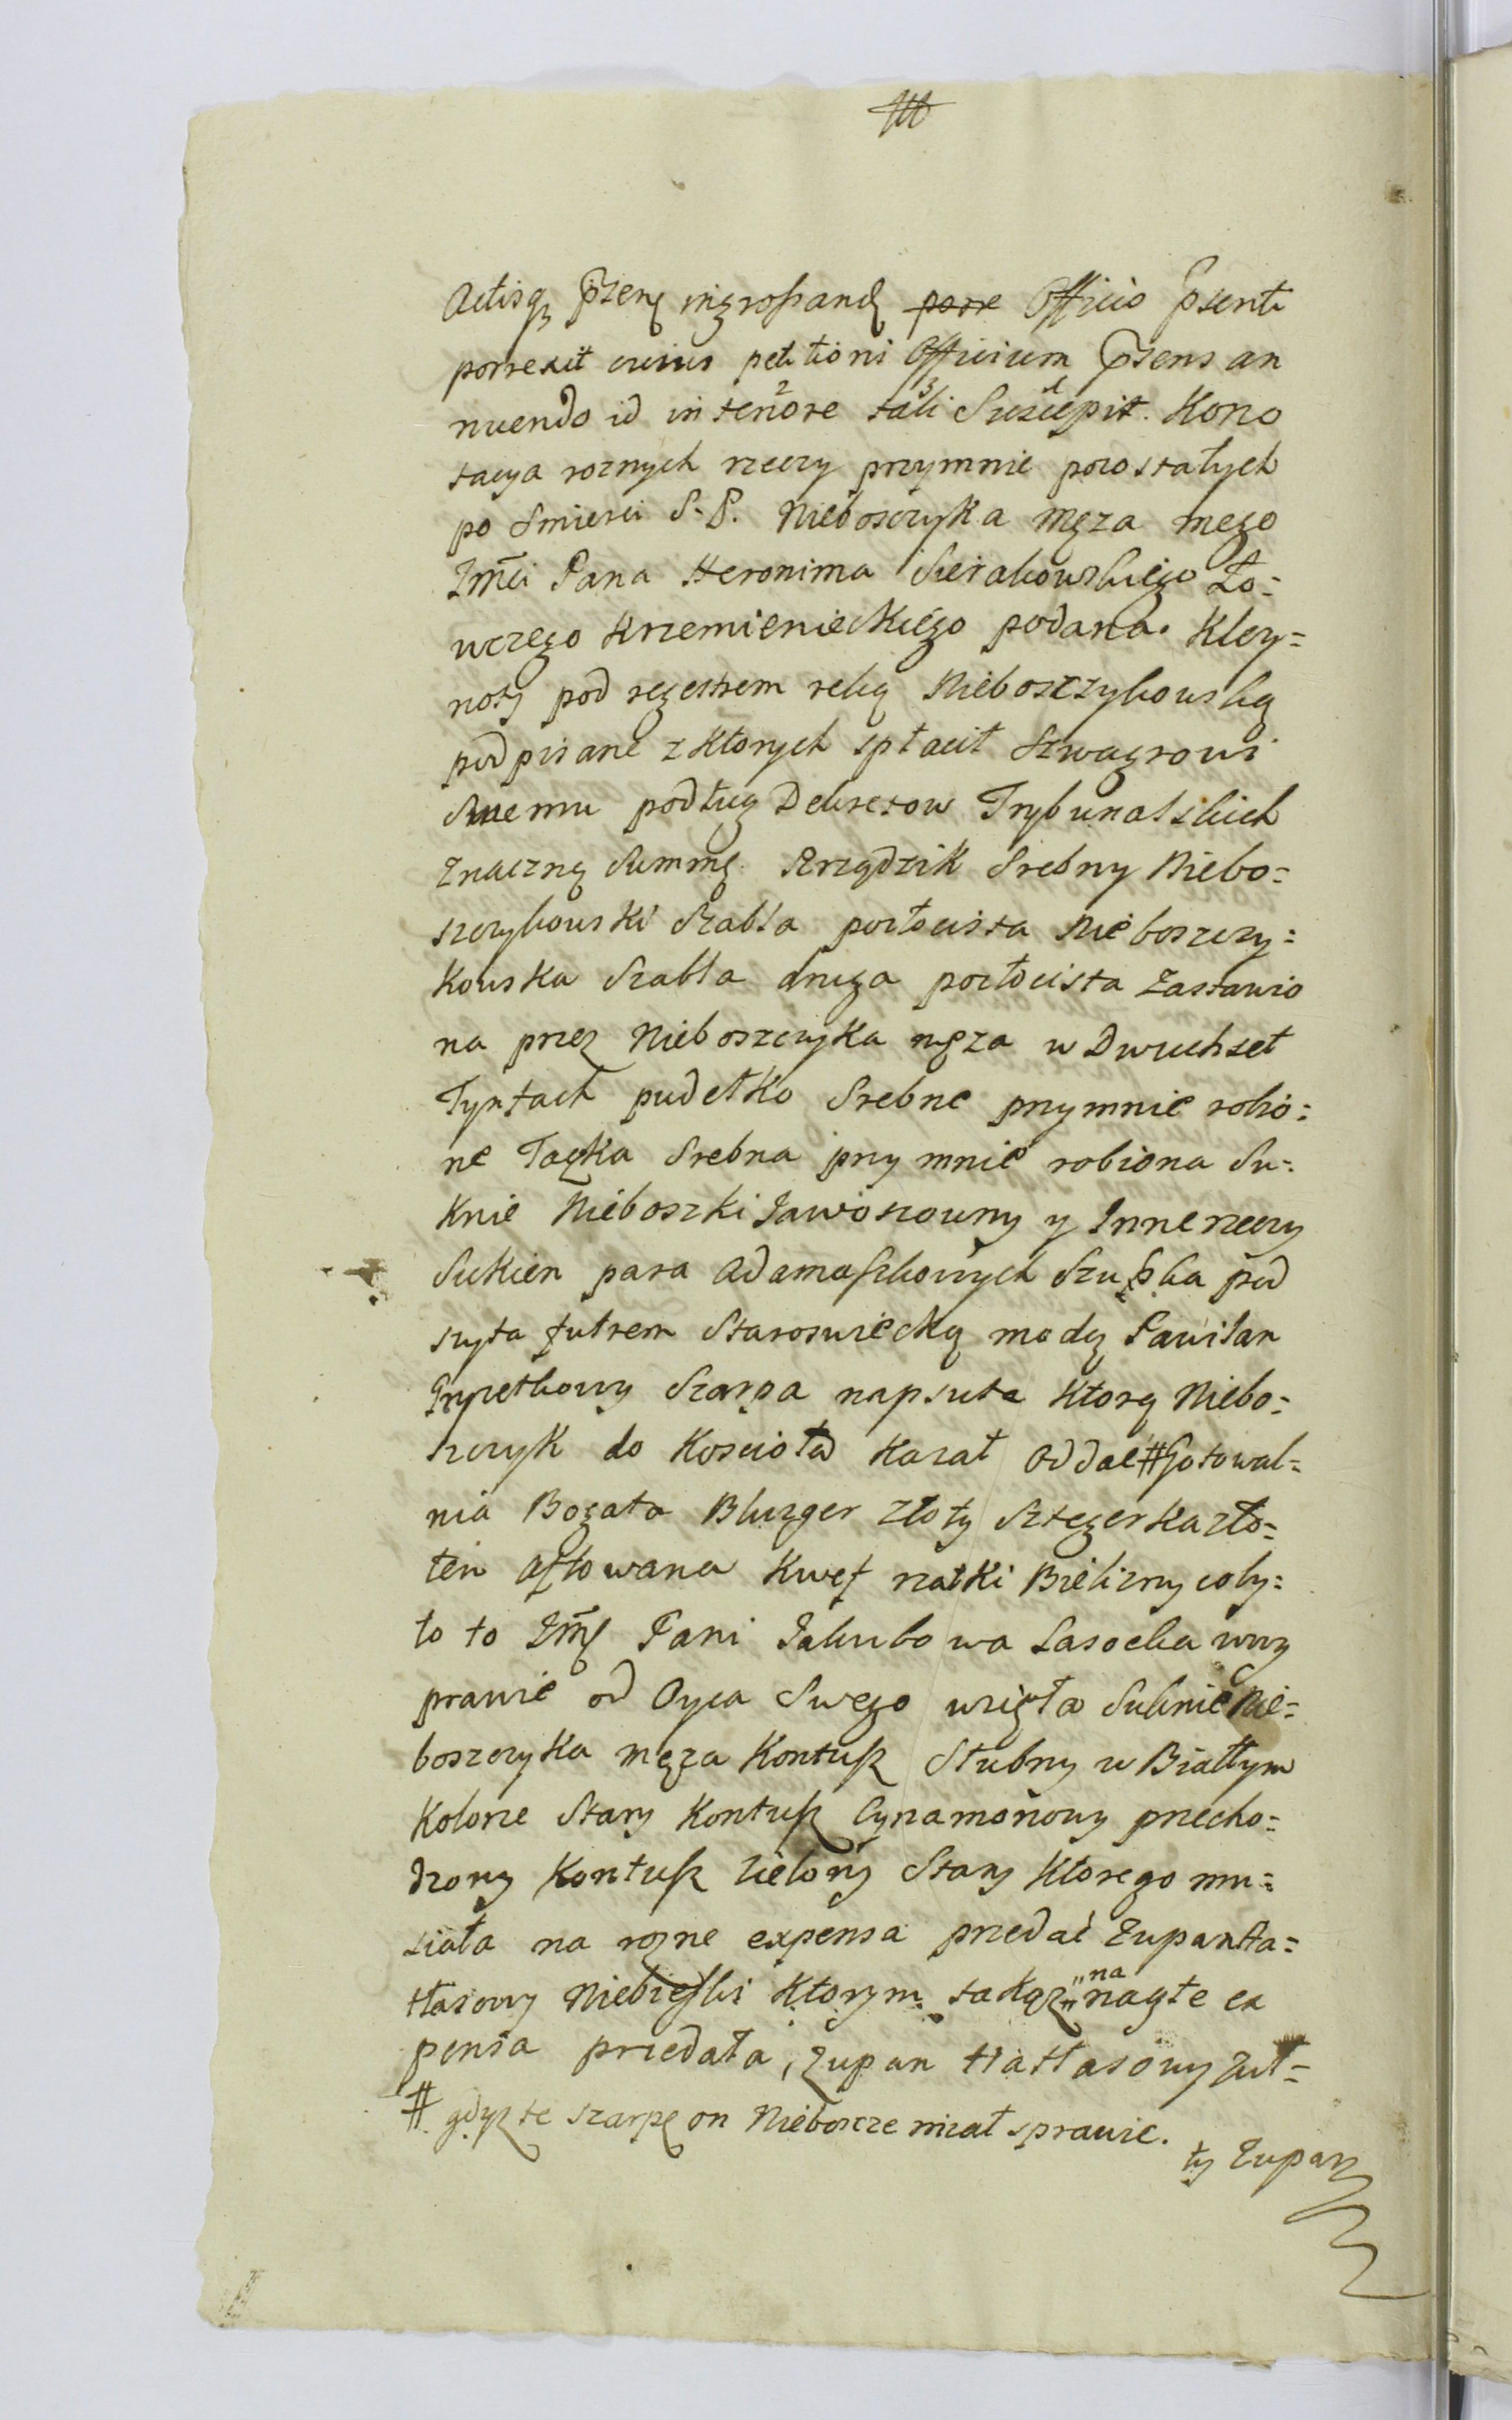 Actisq₃ p̄senꝫ ingrossandꝫ porre Officio p̄senti
porrexit cuius petitioni Officium p̄sens an
nuendo id in tenore tali Suscepit. Kono
tacya roznych rzeczy przymnie pozostałych
po Smierci S. P. Nieboszczyka męza mego
Jm̃ci Pana Heronima Sierakowskiego Ło=
wczego Krzemienieckiego podana. Kley=
noty pod regestrem ręką Nieboszczykowską
podpisane z ktorych spłacił Szwagrowi
Swemu podług Dekretow Trybunalskich
znaczną Summę. Rzędzik Srebny Niebo=
szczykowski Szabla pozłocista Nieboszczy=
kowska Szabla druga pozłocista Zastawio
na przez Nieboszczyka męza w Dwuchset
Tynfach pudełko Srebne przymnie robio=
ne Tacka Srebna przy mnie robiona Su=
knie Nieboszki Jawoszowny y Inne rzeczy
Sukien para Adamaszkowych Szubka pod
szyta futrem Staroswiecką modą Pawilan
Gryzetkowy Szarpa napsuta ktorą Niebo=
szczyk do Koscioła kazał oddać # Gotowal=
nia Bogata Blurger złoty Sztegerka zło=
tem aftowana Kwef rzatki Bielizny coby=
ło to Jm̃ꝫ Pani Jakubowa Lasocka wwy
prawie od Oyca Swego wzięła Suknie Nie=
boszczyka męza Kontusz Slubny w Białym
Kolorze Stary Kontusz Cynamonowy przecho=
dzony Kontusz zielony Stary ktorego mu=
siała na rozne expensa przedać Zupan Ha=
tłasowy Niebieski ktorym takąz na nagłe ex
pensa przedała, Zupan Hatłasowy zuł=
# gdyz te szarpę on Nieboszcze miał sprawic.
ty Zupan